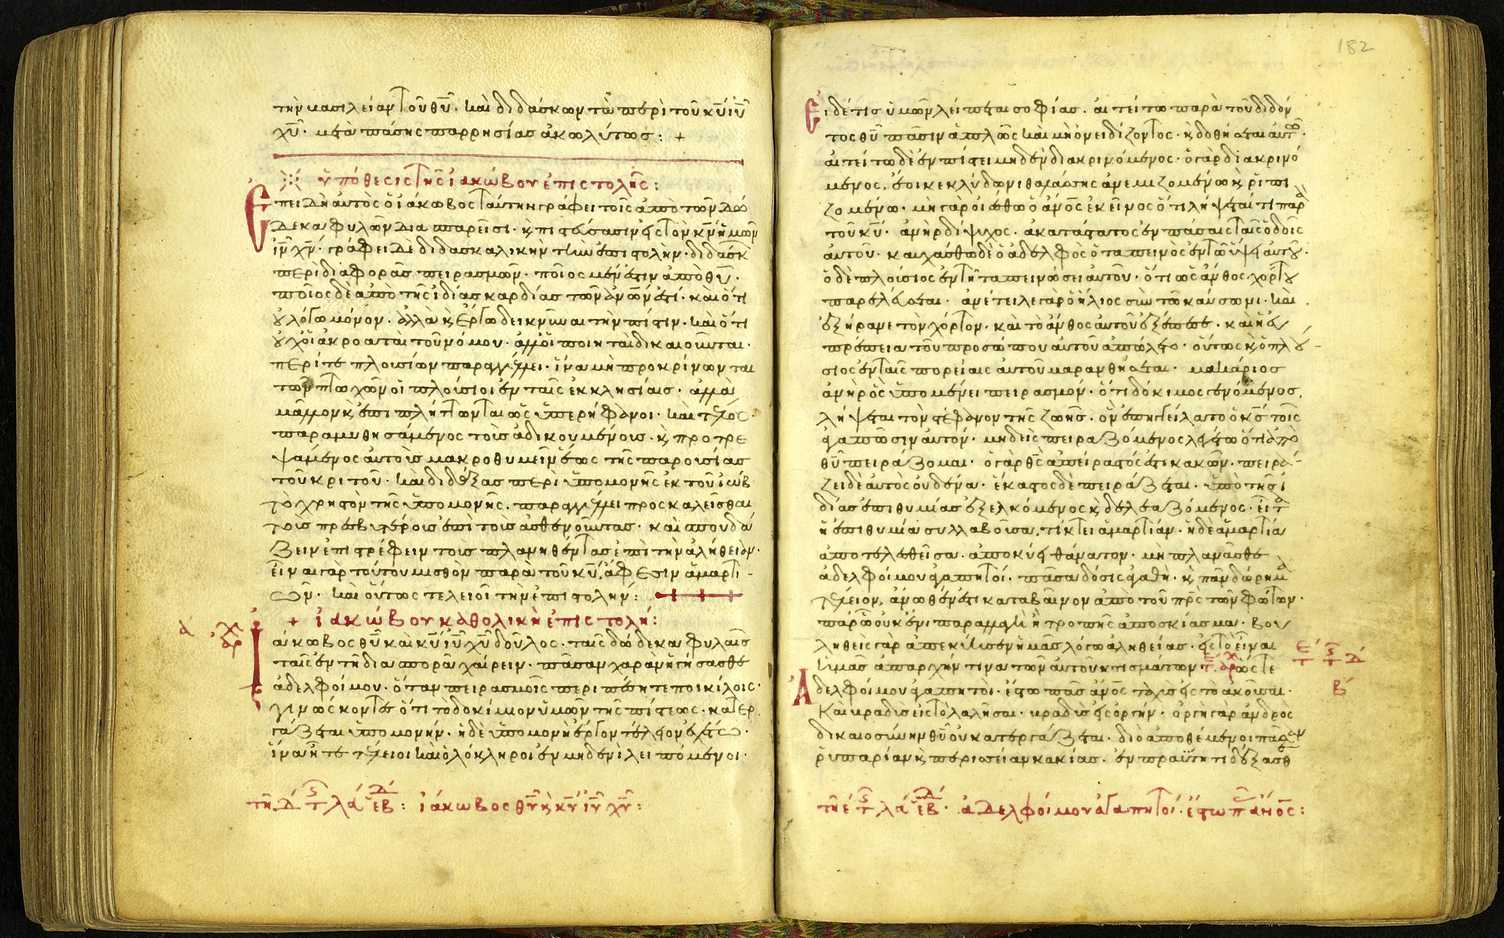 την βασιλείαν τοῦ θῦ· καὶ διδάσκων τὰ περὶ τοῦ κῦ ἰῦ
χῦ· μετὰ πάσης παρρησίας ἀκωλύτως: +
ὑπόθεσις τῆς ἰακώβου ἐπιστολῆς:
Ἐπειδὴ αὐτὸς ὁ ἰάκωβος ταύτην γράφει τοῖς ἀπὸ τῶν δώ
δεκα φυλῶν διασπαρεῖσι· κ πιστεύσασιν εἰς τὸν κν ἡμῶν
ἰν χν· γράφει δὲ διδασκαλικὴν τὴν ἐπιστολὴν· διδάσκ
περὶ διαφορᾶς πειρασμῶν· ποῖος μέν ἐστιν ἀπὸ θῦ·
ποῖος δὲ ἀπὸ τῆς ἰδίας καρδίας τῶν ἀνῶν ἐστί· καὶ ὅτι
οὐ λόγω μόνον· ἀλλὰ κ ἔργω δεικνύναι τὴν πίστιν· καὶ ὅτι
οὐχ οἱ ἀκροαταὶ τοῦ νόμου· ἀλλ οἱ ποιηταὶ δικαιοῦνται·
περί τε πλουσίων παραγγέλλει· ἵνα μὴ προκρίνωνται
τῶν πτωχῶν οἱ πλούσιοι ἐν ταῖς ἐκκλησίαις· ἀλλὰ
μᾶλλον κ ἐπιπλήττωνται ὡς ὑπερήφανοι· καὶ τέλος·
παραμυθησάμενος τοὺς ἀδικουμένους· κ προτρε
ψάμενος αὐτοὺς μακροθυμεῖν ἕως τῆς παρουσίας
τοῦ κριτοῦ· καὶ διδάξας περὶ ὑπομονῆς ἐκ τοῦ ἰώβ
τὸ χρηστὸν τῆς ὑπομονῆς· παραγγέλλει προσκαλεῖσθαι
τοὺς πρεσβυτέρους ἐπὶ τοὺς ἀσθενοῦντας· καὶ σπουδά
ζειν ἐπιστρέφειν τοὺς πλανηθέντας ἐπὶ τὴν ἀλήθειαν·
εἶναι γὰρ τοῦτον μισθὸν παρὰ τοῦ κῦ, ἄφεσιν ἁμαρτι
ῶν· καὶ οὕτως τελειοῖ τὴν ἐπιστολήν:
+ ἰακώβου καθολικὴ ἐπιστολή:
Ἰάκωβος θῦ καὶ κῦ ἰῦ χῦ δοῦλος· ταῖς δώδεκα φυλαῖς
ταῖς ἐν τῆ διασπορᾶ χαίρειν· πᾶσαν χαρὰν ἡγήσασθε
ἀδελφοί μου· ὅταν πειρασμοῖς περιπέσητε ποικίλοις·
γινώσκοντες ὅτι τὸ δοκίμιον ὑμῶν τῆς πίστεως· κατερ
γάζεται ὑπομονήν· ἡ δὲ ὑπομονὴ ἔργον τέλειον ἐχέτω·
ἵνα ἦτε τέλειοι καὶ ὁλόκληροι ἐν μηδενὶ λειπόμενοι·
ἰάκωβος θῦ κ κῦ ἰῦ χῦ:
182
Εἰ δέ τις ὑμῶν λείπεται σοφίας· αἰτείτω παρὰ τοῦ διδόν
τος θῦ πᾶσιν ἁπλῶς καὶ μὴ ὀνειδίζοντος· κ δοθήσεται αὐτῶ·
αἰτείτω δὲ ἐν πίστει μηδὲν διακρινόμενος· ὁ γὰρ διακρινό
μενος, ἔοικε κλύδωνι θαλάσσης ἀνεμιζομένω κ ῥιπι
ζομένω· μὴ γὰρ οἰέσθω ὁ ἄνος ἐκεῖνος ὅτι λήψεταί τι παρ
τοῦ κῦ· ἀνὴρ δίψυχος· ἀκατάστατος ἐν πάσαις ταῖς ὁδοῖς
αὐτοῦ· καυχάσθω δὲ ὁ ἀδελφὸς ὁ ταπεινὸς ἐν τῶ ὕψει αὐτοῦ·
ὁ δὲ πλούσιος ἐν τῆ ταπεινώσει αὐτοῦ· ὅτι ὡς ἄνθος χόρτου
παρελεύσεται· ἀνέτειλε γὰρ ὁ ἥλιος σὺν τῶ καύσωνι· καὶ
ἐξήρανε τὸν χόρτον· καὶ τὸ ἄνθος αὐτοῦ ἐξέπεσε· καὶ ἡ εὐ
πρέπεια τοῦ προσώπου αὐτοῦ ἀπώλετο· οὕτως κ ὁ πλού
σιος ἐν ταῖς πορείαις αὐτοῦ μαρανθήσεται· μακάριος
ἀνὴρ ὃς ὑπομένει πειρασμόν· ὅτι δόκιμος γενόμενος
λήψεται τὸν στέφανον τῆς ζωῆς· ὃν ἐπηγγείλατο ὁ κς τοῖς
ἀγαπῶσιν αὐτόν· μηδεὶς πειραζόμενος λεγέτω ὅτι ἀπὸ
θῦ πειράζομαι· ὁ γὰρ θς ἀπείραστός ἐστι κακῶν· πειρά
ζει δὲ αὐτὸς οὐδένα· ἕκαστος δὲ πειράζεται· ὑπὸ τῆς ἰ
δίας ἐπιθυμίας ἐξελκόμενος κ δελεαζόμενος· εἶτ
ἡ ἐπιθυμία συλλαβοῦσα, τίκτει ἁμαρτίαν· ἡ δὲ ἁμαρτία
ἀποτελεσθεῖσα· ἀποκύει θάνατον· μὴ πλανᾶσθε
ἀδελφοί μου ἀγαπητοί· πᾶσα δόσις ἀγαθὴ· κ πᾶν δώρημα
τέλειον, ἄνωθέν ἐστι καταβαῖνον ἀπὸ τοῦ πρς τῶν φώτων·
παρ ὧ οὐκ ἔνι παραλλαγὴ ἢ τροπῆς ἀποσκίασμα· βου
ληθεὶς γὰρ ἀπεκύησεν ἡμᾶς λόγω ἀληθείας· εἰς τὸ εἶναι
ἡμᾶς ἀπαρχήν τινα τῶν αὐτοῦ κτισμάτων ὥστε
Ἀδελφοί μου ἀγαπητοί· ἔστω πᾶς ἄνος ταχὺς εἰς τὸ ἀκοῦσαι·
καὶ βραδὺς εἰς τὸ λαλῆσαι· βραδὺς εἰς ὀργήν· ὀργὴ γὰρ ἀνδρὸς
δικαιοσύνην θῦ οὐ κατεργάζεται· διὸ ἀποθέμενοι πᾶσαν
ῥυπαρίαν κ περισσείαν κακίας· ἐν πραΰτητι δέξασθε
ἀδελφοί μου ἀγαπητοί· ἔστω πᾶς ἄνος: